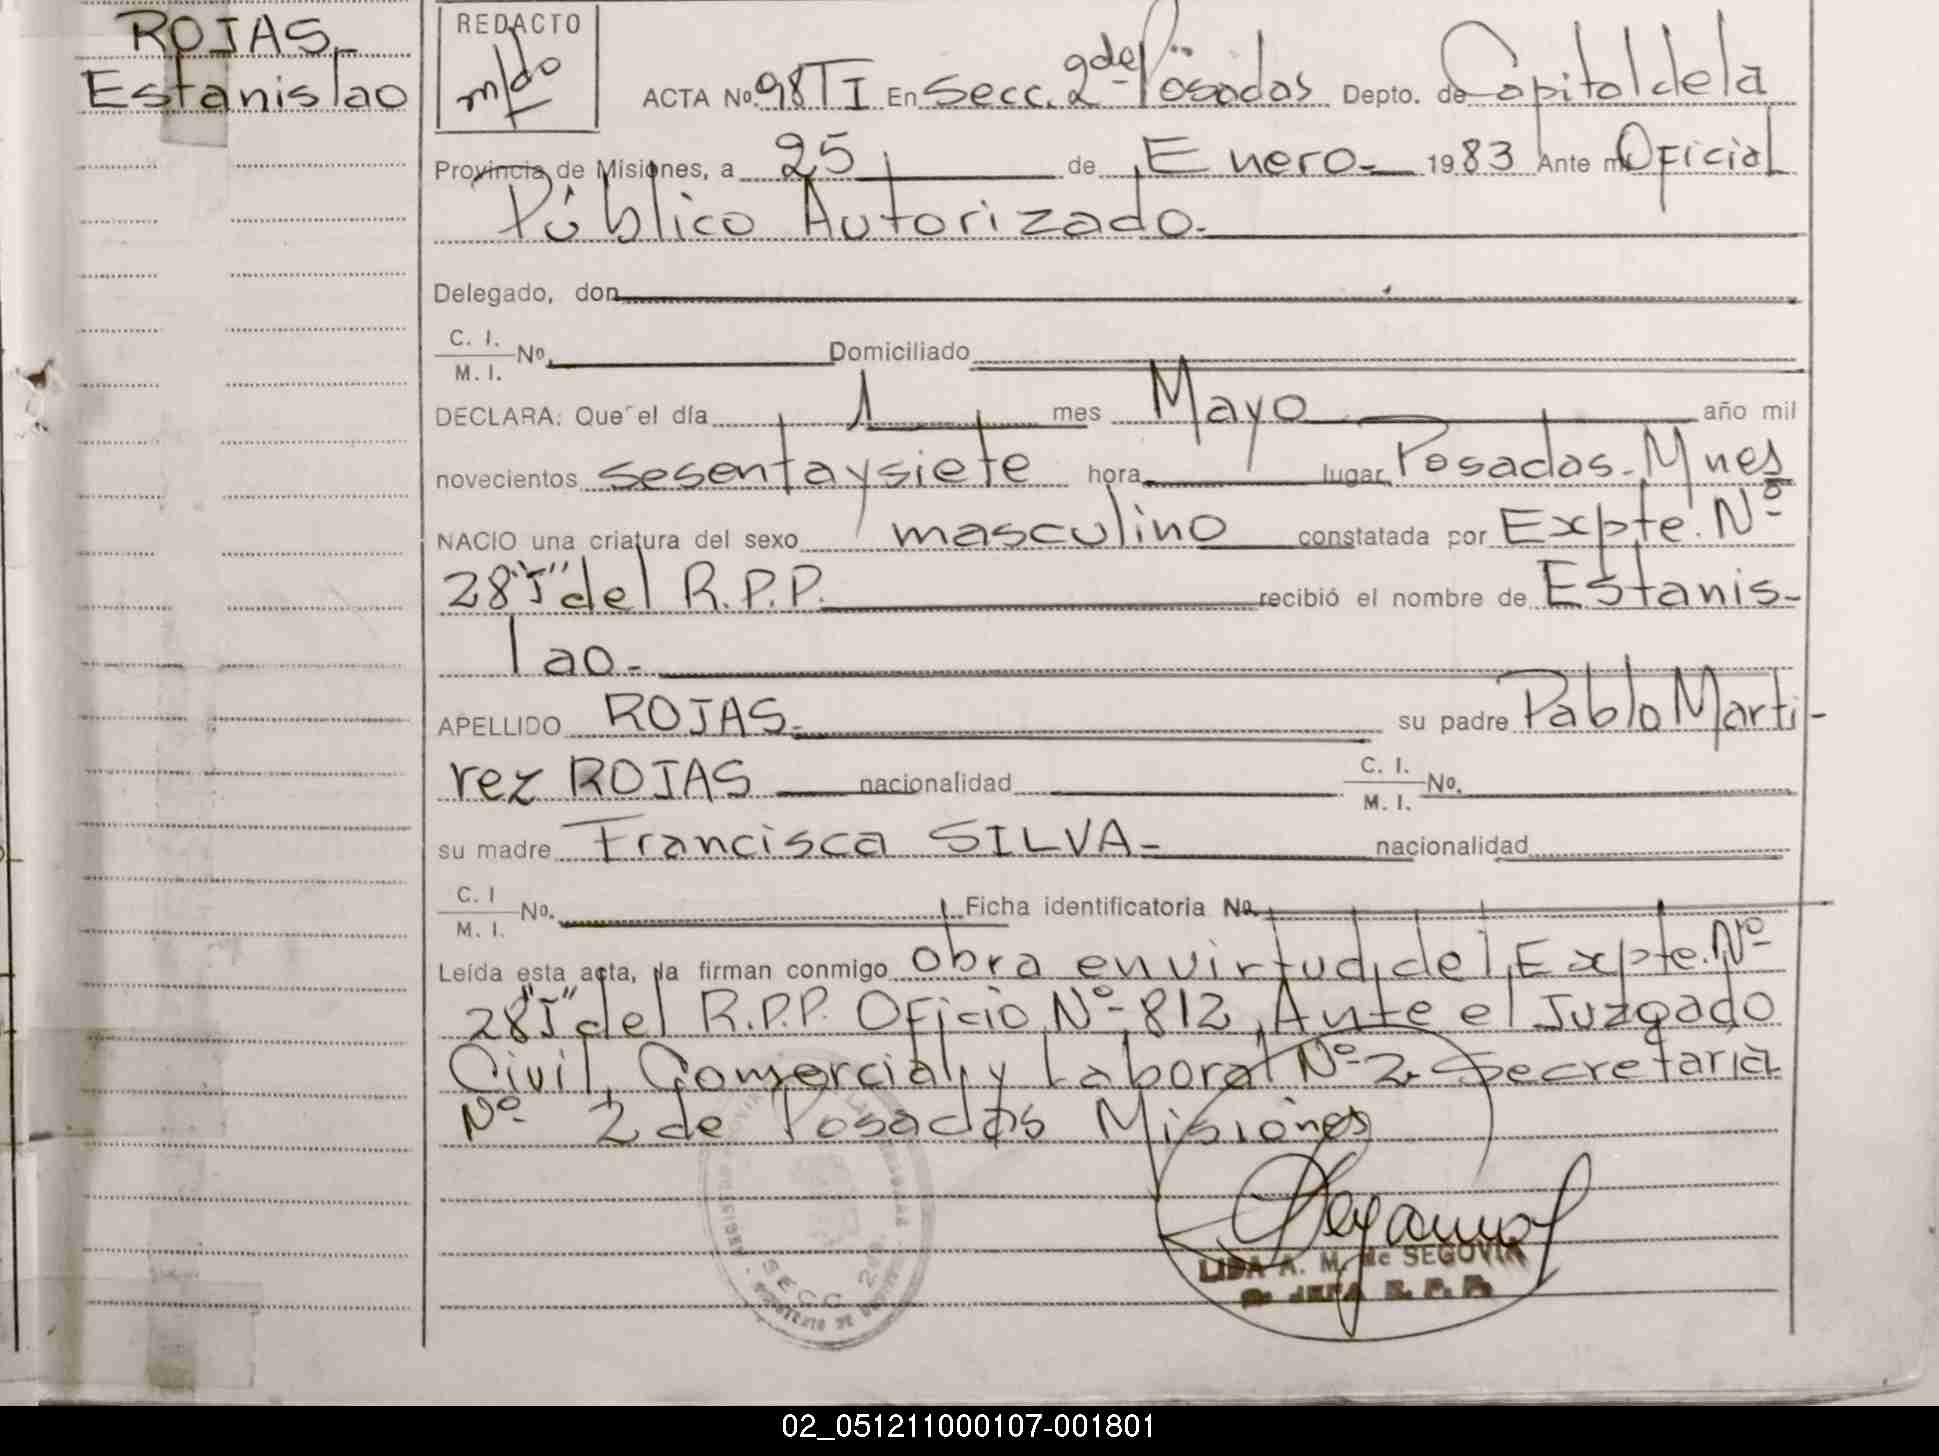 ROJAS.-
Estanislao
REDACTO
ACTA No. 98 T I En Secc. 2da Posadas Depto. de Capital de la
Provincia de Misiones, a 25 de Enero - 1983 Ante mi Oficial
Público Autorizado.-
Delegado, don
C. I.
M. I. No. Domiciliado
DECLARA: Que el día 1 mes Mayo año mil
novecientos sesenta y siete hora lugar Posadas - Mnes
NACIO una criatura del sexo masculino constatada por Expte. Nº
28"J" del R.P.P. recibió el nombre de Estanis-
lao.-
APELLIDO ROJAS.- su padre Pablo Marti-
rez ROJAS nacionalidad C. I.
M. I. No.
su madre Francisca SILVA - nacionalidad
C. I
M. I. No. Ficha identificatoria No.
Leída esta acta, la firman conmigo obra en virtud, del, Expte. Nº
28"J" del R.P.P. Oficio Nº 812, Ante el Juzgado
Civil, Comercial, y Laboral Nº 2 Secretaria
Nº 2 de Posadas Misiones
LIDA A. M. de SEGOVIA
JEFA R. P. P.
SECC 2da
02_051211000107-001801